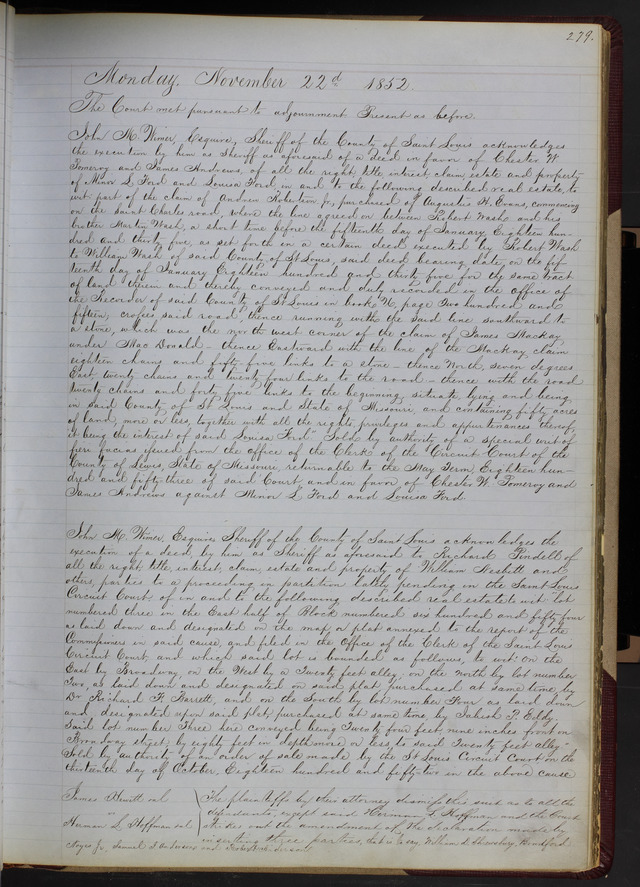 279.
Monday, November 22d 1852.
The Court met pursuant to adjournment Present as before.
John M. Wimer, Esquire, Sheriff of the County of Saint Louis acknowledges
the execution by him as Sheriff as aforesaid of a deed in favor of Chester W.
Pomeroy and James Andrews, of all the right, title interest, claim, estate and property
of Minor L. Ford and Louisa Ford, in and to the following described real estate, to
wit: part of the claim of Andrew Robertson Jr, purchased of Augustus H. Evans, commencing
on the Saint Charles road, where the line agreed on between Robert Wash and his
brother Martin Wash, a short time before the fifteenth day of January Eighteen hun-
dred and thirty five, as set forth in a certain deed executed by Robert Wash
to William Wash of said County of St Louis, said deed bearing date, on the fif-
teenth day of January Eighteen hundred and thirty five for the same tract
of land therein and thereby conveyed and duly recorded in the office of
the Recorder of said County of St Louis in book U, page Two hundred and
fifteen, crosses said road, thence running with the said line southward to
a stone, which was the north west corner of the claim of James Mackay,
under Mac Donald – thence Eastward with the line of the Mackay claim
eighteen chains and fifty five links to a stone – thence North, seven degrees
East, twenty chains and twenty four links to the road – thence with the road
twenty chains and forty five links to the beginning, situate, lying and being
in said County of St Louis and State of Missouri, and containing fifty acres
of land, more or less, together with all the rights, privileges and appurtenances thereof,
it being the interest of said Louisa Ford. Sold by authority of a special writ of
fieri facias issued from the office of the Clerk of the Circuit Court of the
County of Lewis, State of Missouri, returnable to the May Term, Eighteen hun-
dred and fifty-three of said Court, and in favor of Chester W. Pomeroy and
James Andrews against Minor L. Ford and Louisa Ford.
John M. Wimer, Esquire Sheriff of the County of Saint Louis acknowledges the
execution of a deed, by him as Sheriff as aforesaid to Richard Pindell of
all the right, title, interest, claim, estate and property of William Nesbitt and
others, parties to a proceeding in partition lately pending in the Saint Louis
Circuit Court, of in and to the following described real estate to wit: lot
numbered three in the East half of Block numbered six hundred and fifty four
as laid down and designated on the map or plat annexed to the report of the
Commissioners in said cause, and filed in the Office of the Clerk of the Saint Louis
Circuit Court, and which said lot is bounded as follows, to wit: On the
East by Broadway, on the West by a Twenty feet alley, on the north by lot number
Two, as laid down and designated on said plat purchased at same time, by
Dr Richard F. Barrett, and on the South by lot number Four as laid down
and designated upon said plat, purchased at same time, by T. Eddy.
Said lot number Three here conveyed being Twenty four feet, nine inches front on
Broadway street, by eighty feet in depth more or less, to said Twenty feet alley.
Sold by authority of an order of sale made by the St Louis Circuit Court on the
thirteenth day of October, Eighteen hundred and fifty-two in the above cause
James Hewitt et al The plaintiffs by their attorney dismiss this suit as to all the
vs defendants, except said Herman L. Hoffman and the Court
Herman L. Hoffman et al strikes out the amendment of the declaration made by
inserting three parties, that is to say, William D. Shewsbury, Bradford
Noyes Jr, Samuel J. Anderson and Anderson.